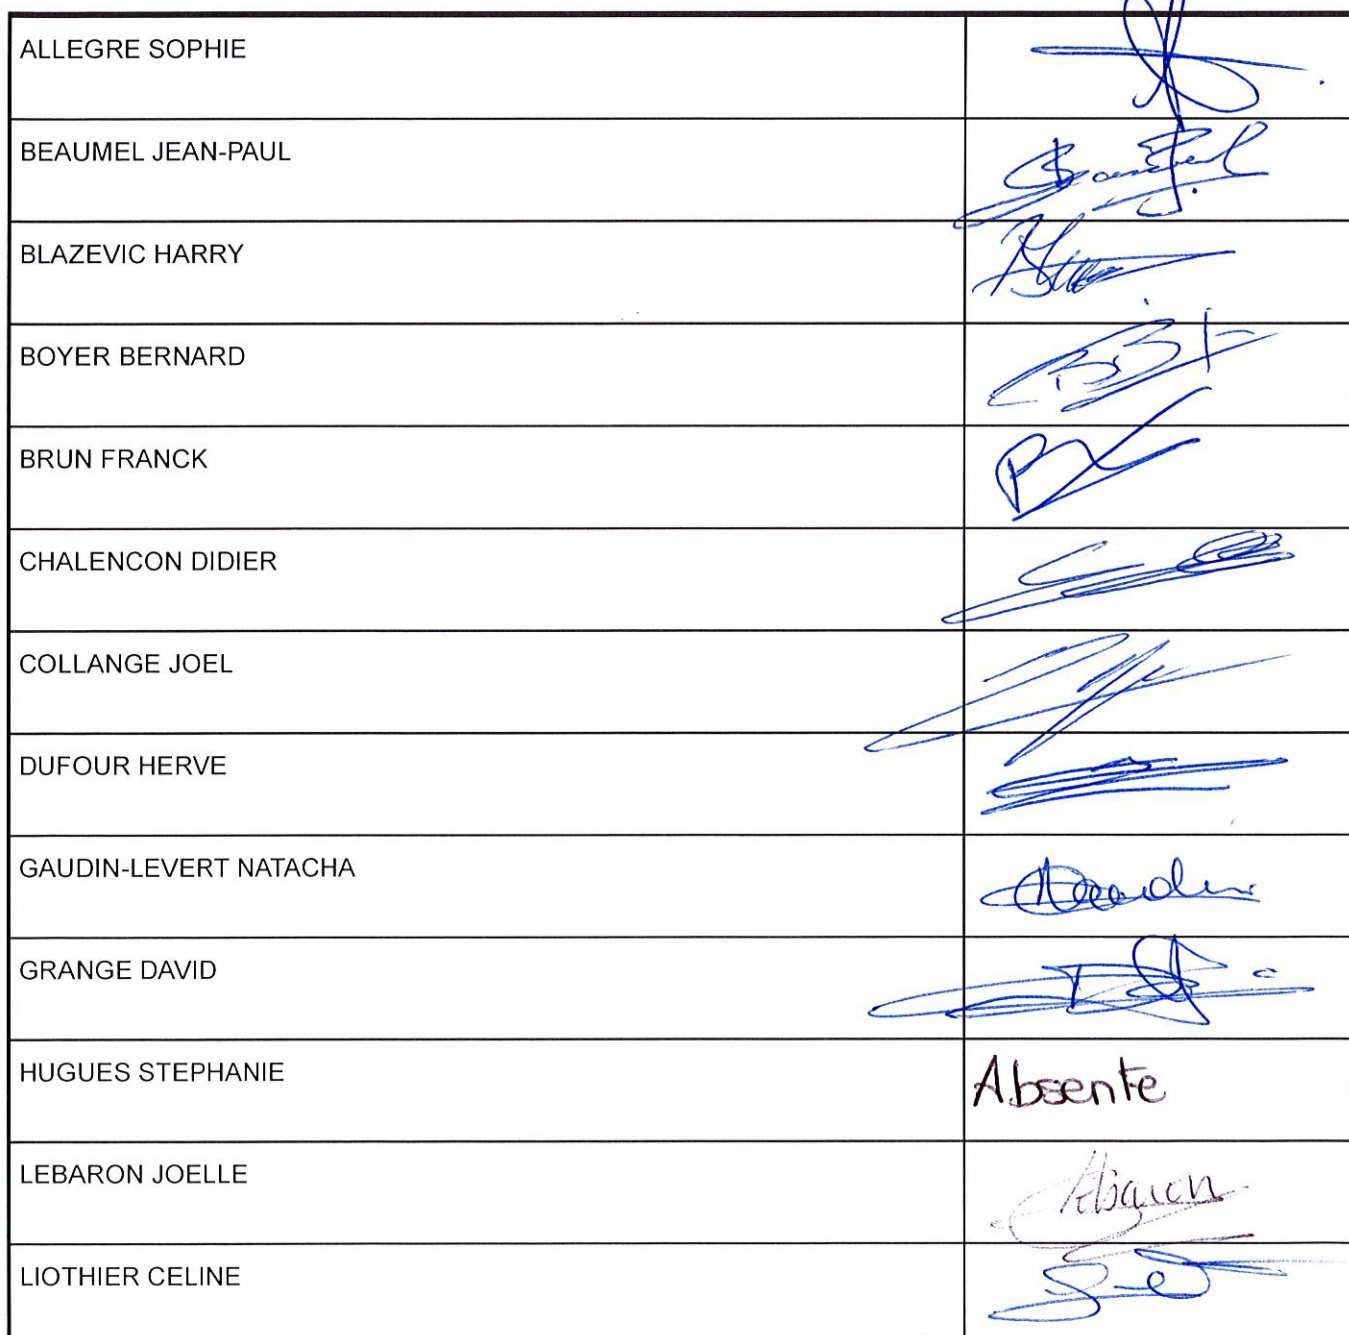 ALLEGRE SOPHIE
BEAUMEL JEAN-PAUL
BLAZEVIC HARRY
BOYER BERNARD
BRUN FRANCK
CHALENCON DIDIER
COLLANGE JOEL
DUFOUR HERVE
GAUDIN-LEVERT NATACHA
GRANGE DAVID
HUGUES STEPHANIE Absente
LEBARON JOELLE
LIOTHIER CELINE